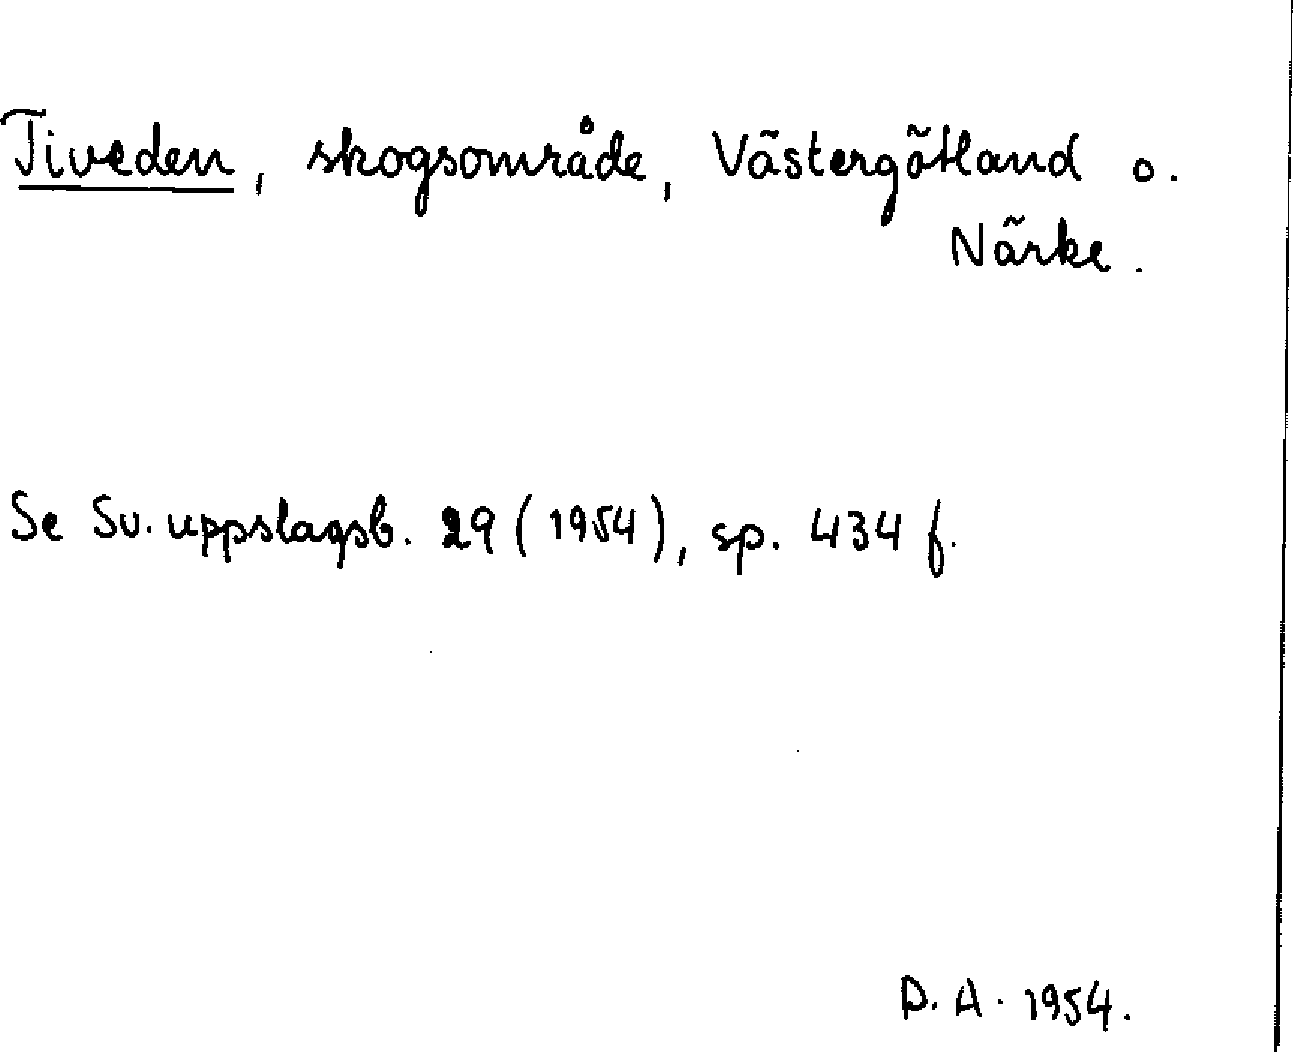 Tiveden, skogsområde, Västergötland o.
Närke.
Se Sv. uppslagsb. 29 (1954), sp. 434 f.
D. A. 1954.